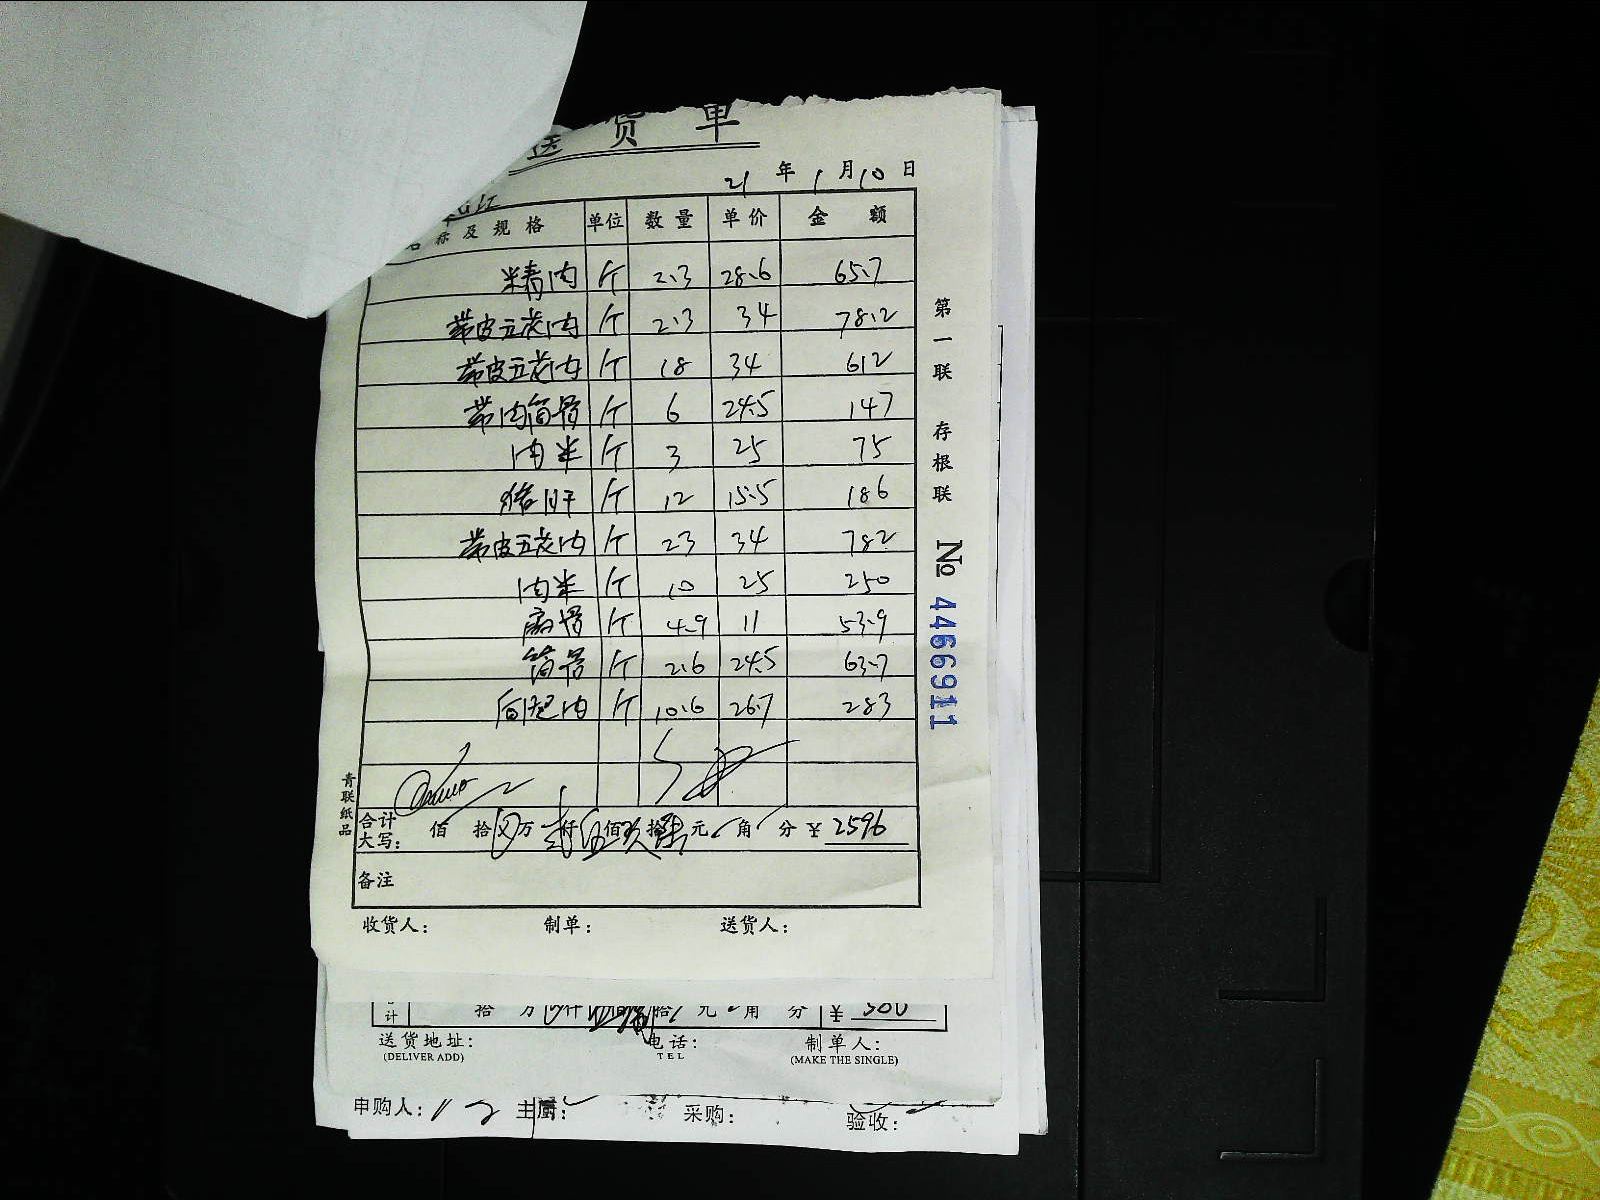 送货单
21 年 1 月 10 日
名称及规格 单位 数量 单价 金额
精肉 斤 2.3 28.6 65.7
带皮五花肉 斤 2.3 34 78.2
带皮五花肉 斤 18 34 612
带肉筒骨 斤 6 24.5 147
肉米 斤 3 25 75
猪肝 斤 12 15.5 186
带皮五花肉 斤 23 34 782
肉米 斤 10 25 250
扇骨 斤 4.9 11 53.9
筒骨 斤 2.6 24.5 63.7
斤 10.6 26.7 283
合计大写: 佰 拾 万 仟 伍 佰 玖 拾 陆 元 角 分 ¥ 2596
备注
收货人: 制单: 送货人:
第一联 存根联 No 4466911
青联纸品
计 拾 万 仟 佰 拾 元 角 分 ¥ 500
送货地址: 电话: 制单人:
(DELIVER ADD) TEL (MAKE THE SINGLE)
申购人: 主厨: 采购: 验收: